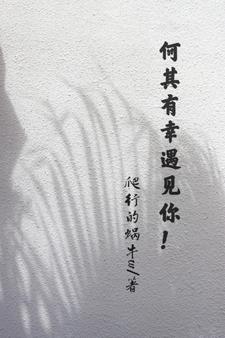 何其有幸遇见你！
爬行的蜗牛ミ/著